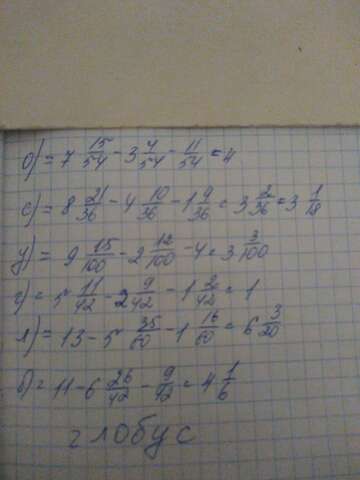 о) = 7 15/54 - 3 4/54 - 11/54 = 4
с) = 8 21/36 - 4 10/36 - 1 9/36 = 3 2/36 = 3 1/18
у) = 9 15/100 - 2 12/100 - 4 = 3 3/100
г) = 5 11/42 - 2 9/42 - 1 2/42 = 1
л) = 13 - 5 35/60 - 1 16/60 = 6 3/20
б) = 11 - 6 26/42 - 9/42 = 4 1/6
глобус